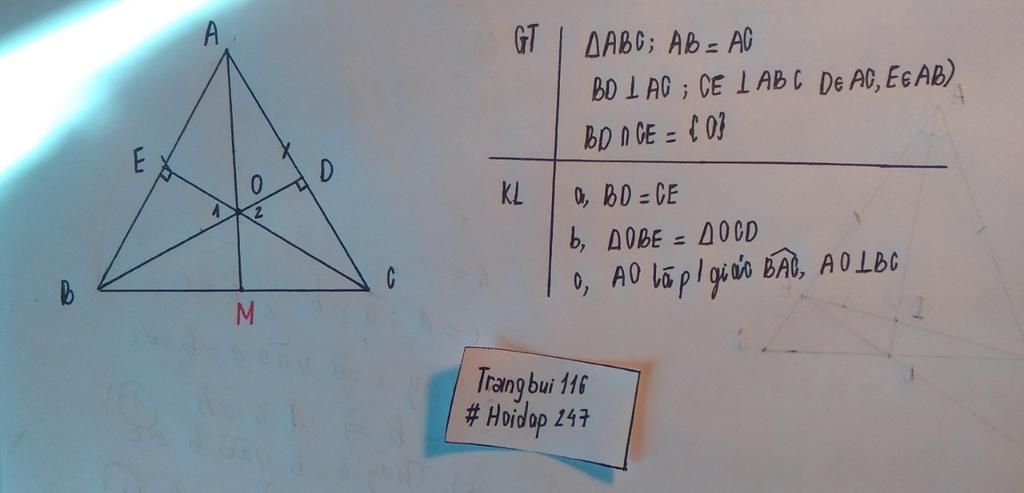 A
E
D
O
1
2
B
C
M
GT
ΔABC; AB = AC
BD ⊥ AC ; CE ⊥ ABC D∈AC, E∈AB)
BD ∩ CE = {O}
KL
a, BD = CE
b, ΔOBE = ΔOCD
c, AO là p/giác BAC, AO⊥BC
Trangbui 116
# Hoidap 247